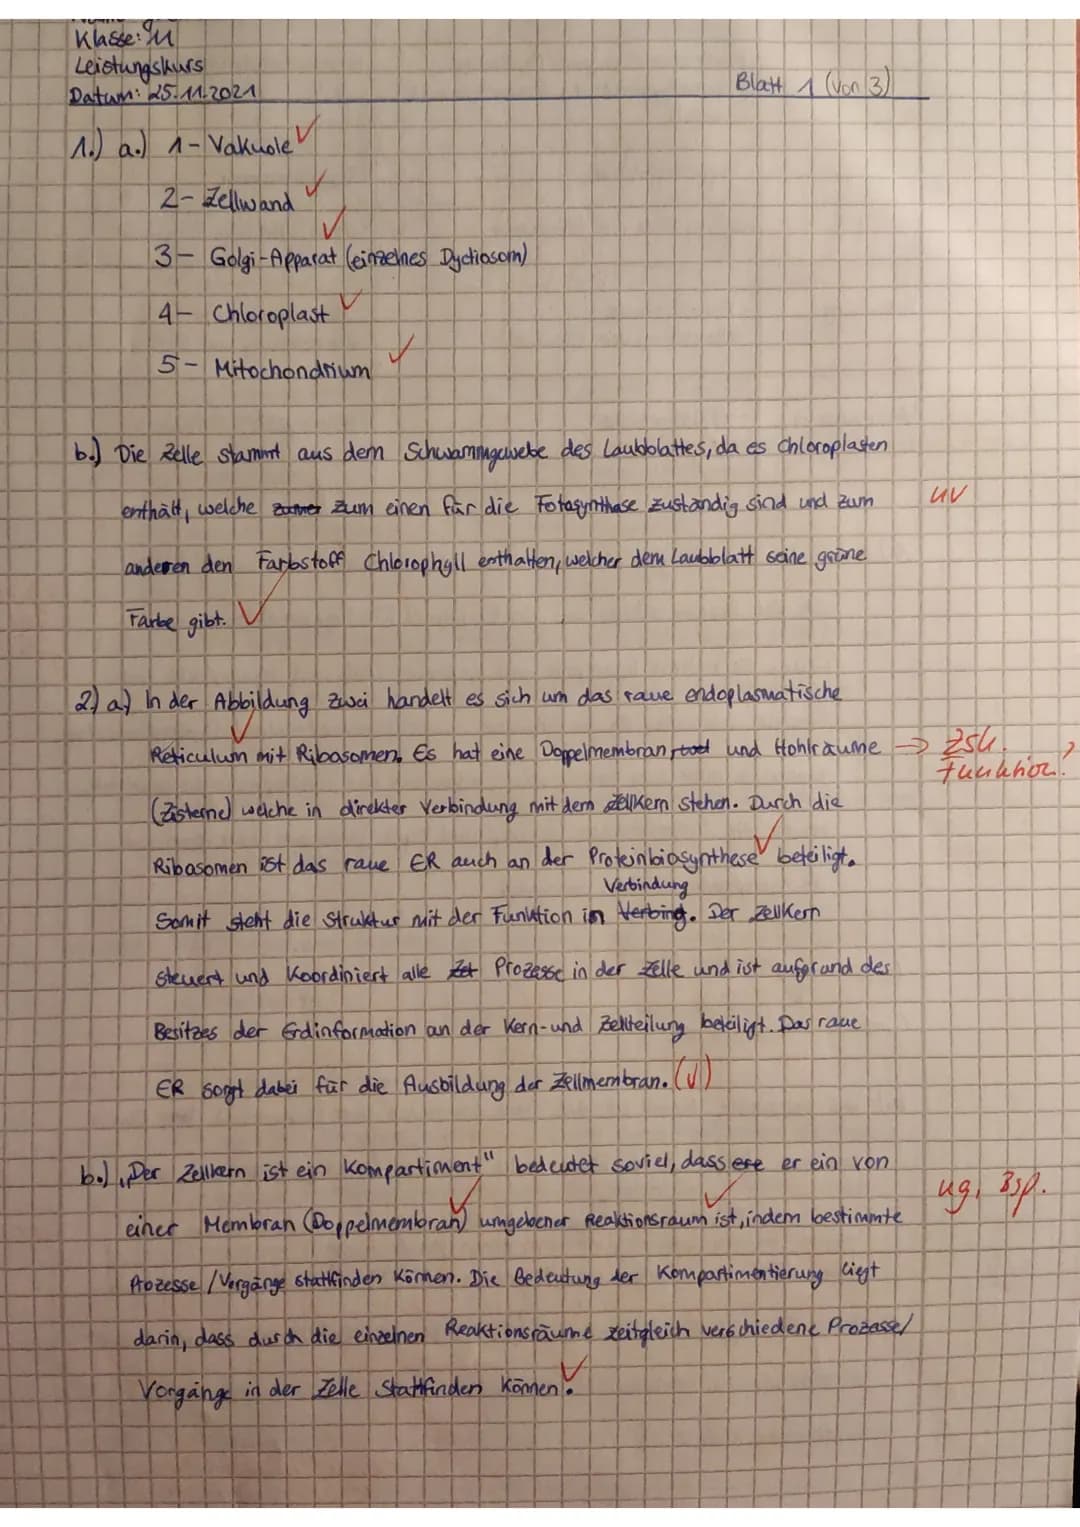 Klasse: 11
Leistungskurs
Datum: 25.11.2021
Blatt 1 (von 3)
1.) a.) 1- Vakuole
2- Zellwand
3- Golgi-Apparat (einzelnes Dyctiosom)
4- Chloroplast
5- Mitochondrium
b.) Die Zelle stammt aus dem Schwammgewebe des Laubblattes, da es Chloroplasten
enthält, welche zum einen für die Fotosynthase zuständig sind und zum uv
anderen den Farbstoff Chlorophyll enthalten, welcher dem Laubblatt seine grüne
Farbe gibt.
2) a.) In der Abbildung zwei handelt es sich um das raue endoplasmatische
Reticulum mit Ribosomen. Es hat eine Doppelmembran, und Hohlräume → Zsh.
Funktion?
(Zisterne) welche in direkter Verbindung mit dem Zellkern stehen. Durch die
Ribosomen ist das raue ER auch an der Proteinbiosynthese beteiligt.
Verbindung
Somit steht die Struktur mit der Funktion in Verbing. Der Zellkern
steuert und Koordiniert alle Prozesse in der Zelle und ist aufgrund des
Besitzes der Erdinformation an der Kern- und Zellteilung beteiligt. Das raue
ER sorgt dabei für die Ausbildung der Zellmembran. (√)
b.) „Der Zellkern ist ein Kompartiment" bedeutet soviel, dass er ein von
einer Membran (Doppelmembran) umgebener Reaktionsraum ist, indem bestimmte ug, Bsp.
Prozesse / Vorgänge stattfinden können. Die Bedeutung der Kompartimentierung liegt
darin, dass durch die einzelnen Reaktionsräume zeitgleich verschiedene Prozesse/
Vorgänge in der Zelle stattfinden können.